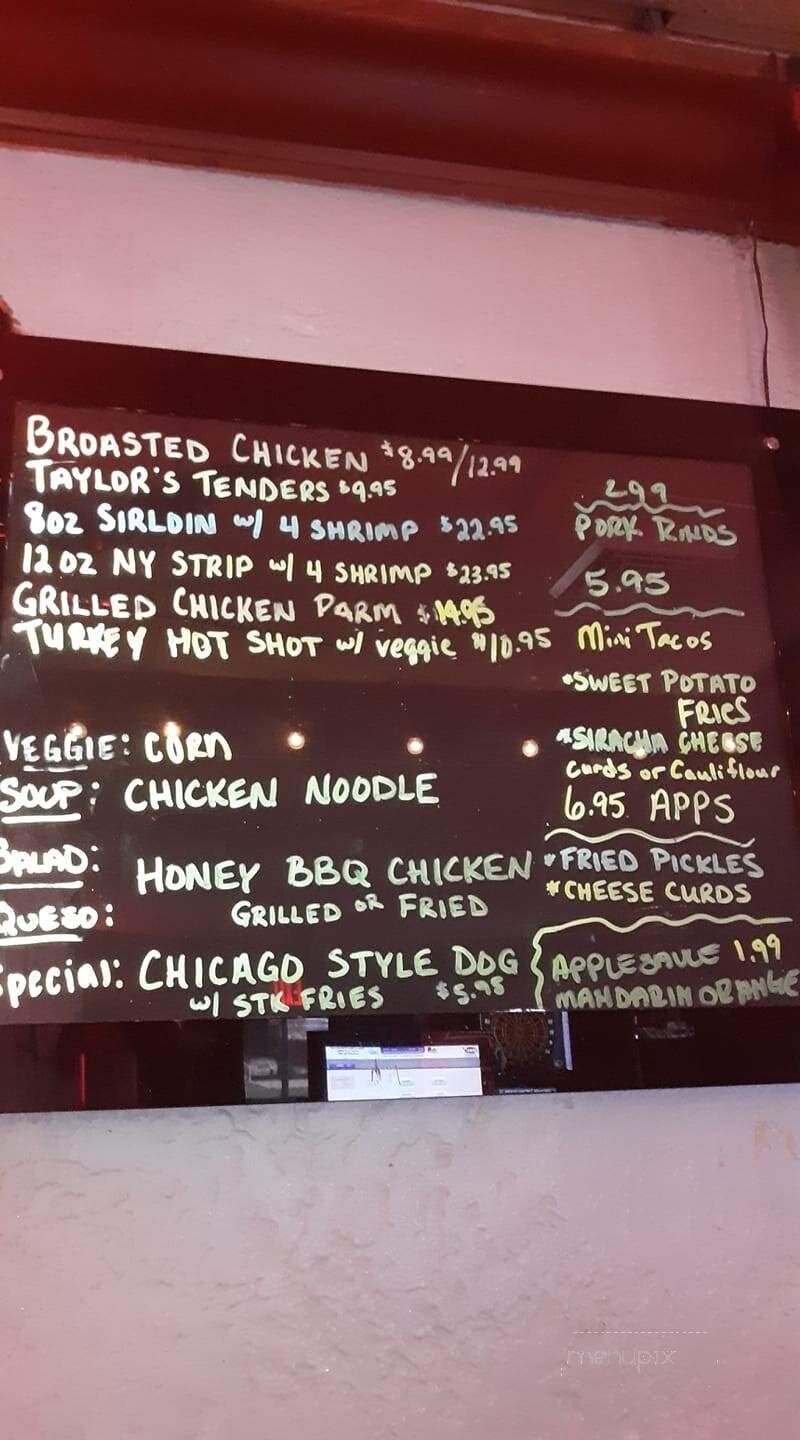 BROASTED CHICKEN $8.99/12.99
TAYLOR'S TENDERS $9.95
8oz SIRLOIN w/ 4 SHRIMP $22.95
12 oz NY STRIP w/ 4 SHRIMP $23.95
GRILLED CHICKEN PARM $14.95
TURKEY HOT SHOT w/ veggie $10.95
VEGGIE: CORN
SOUP: CHICKEN NOODLE
SALAD: HONEY BBQ CHICKEN
GRILLED OR FRIED
QUESO:
Special: CHICAGO STYLE DOG
w/ STK FRIES $5.95
2.99
PORK RINDS
5.95
Mini Tacos
*SWEET POTATO
FRIES
*SIRACHA CHEESE
Curds or Cauliflour
6.95 APPS
*FRIED PICKLES
*CHEESE CURDS
APPLESAUCE 1.99
MANDARIN ORANGE
menupix